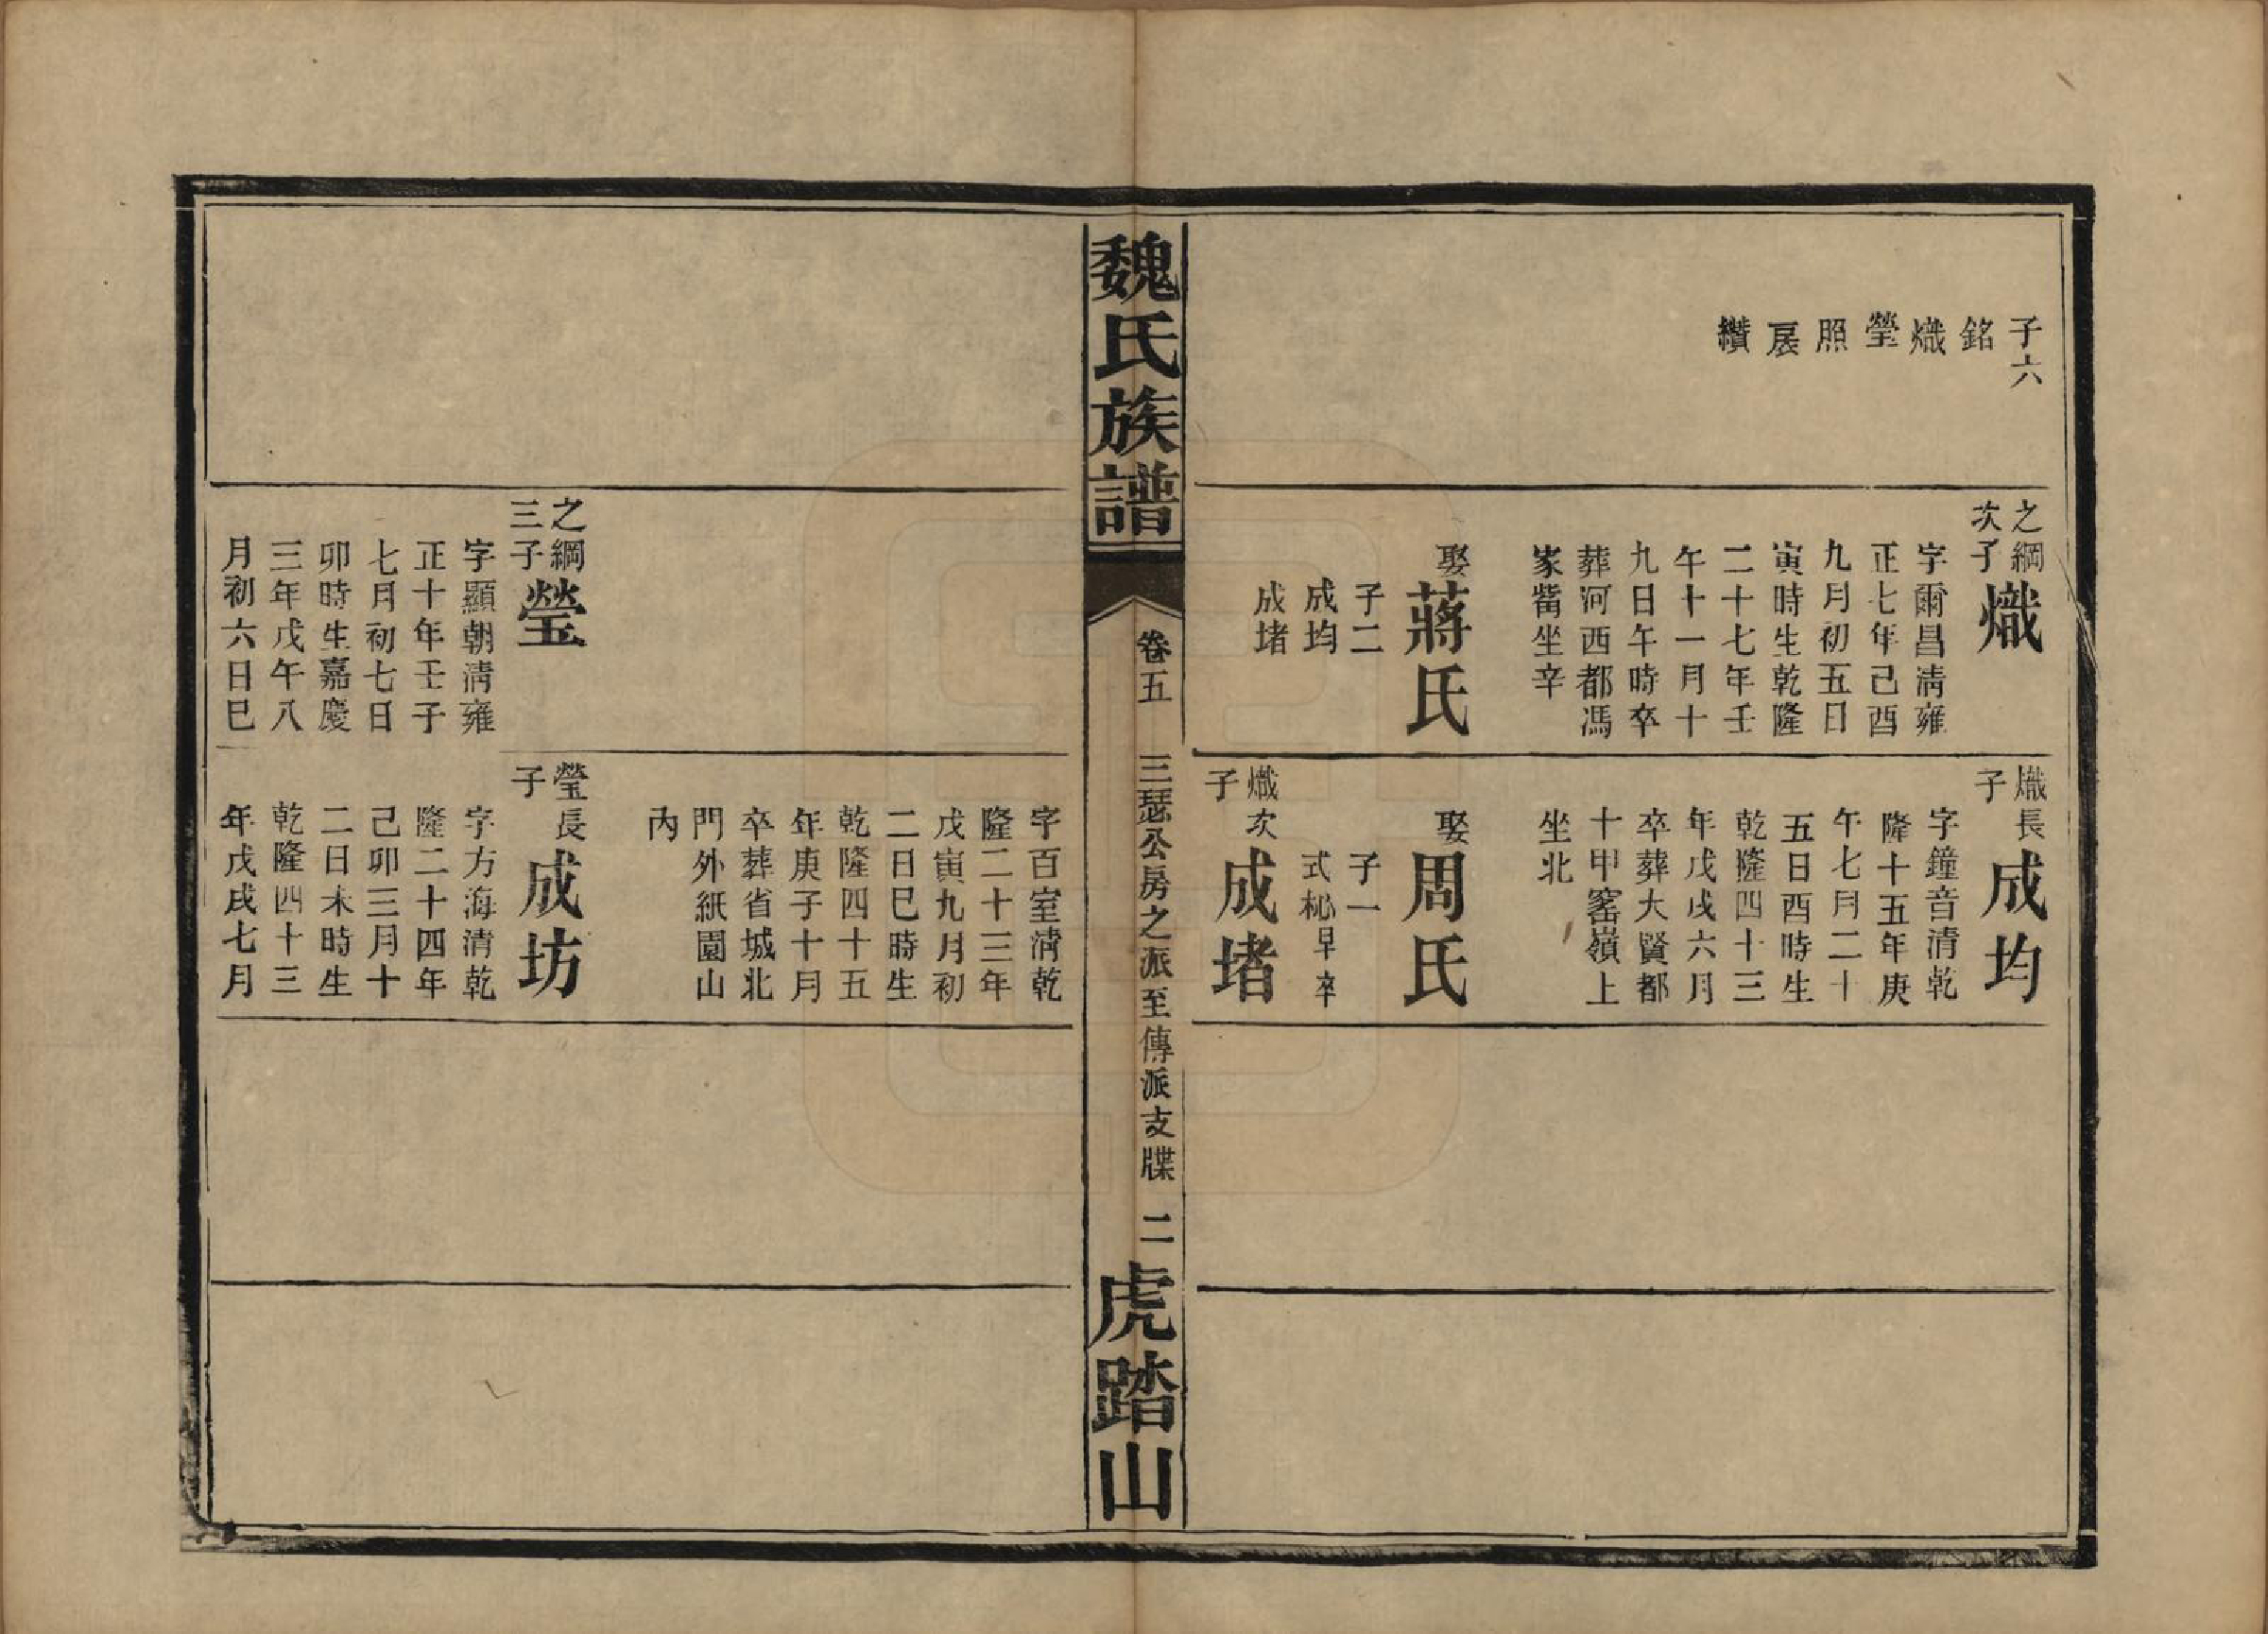 子六
銘
熾
瑩
照
扆
纘
之綱
次子
熾
字爾昌淸雍
正七年己酉
九月初五日
寅時生乾隆
二十七年壬
午十一月十
九日午時卒
葬河西都馮
家嘴坐辛
娶
蔣氏
子二
成均
成堵
熾長
子
成均
字鐘音淸乾
隆十五年庚
午七月二十
五日酉時生
乾隆四十三
年戊戌六月
卒葬大賢都
十甲窰嶺上
坐北
娶
周氏
子一
式柲早卒
熾次
子
成堵
魏氏族譜
卷五
三瑟公房之派至傳派支牒
二
虎踏山
之綱
三子
瑩
字顯朝淸雍
正十年壬子
七月初七日
卯時生嘉慶
三年戊午八
月初六日巳
字百室淸乾
隆二十三年
戊寅九月初
二日巳時生
乾隆四十五
年庚子十月
卒葬省城北
門外紙園山
內
瑩長
子
成坊
字方海淸乾
隆二十四年
己卯三月十
二日未時生
乾隆四十三
年戊戌七月